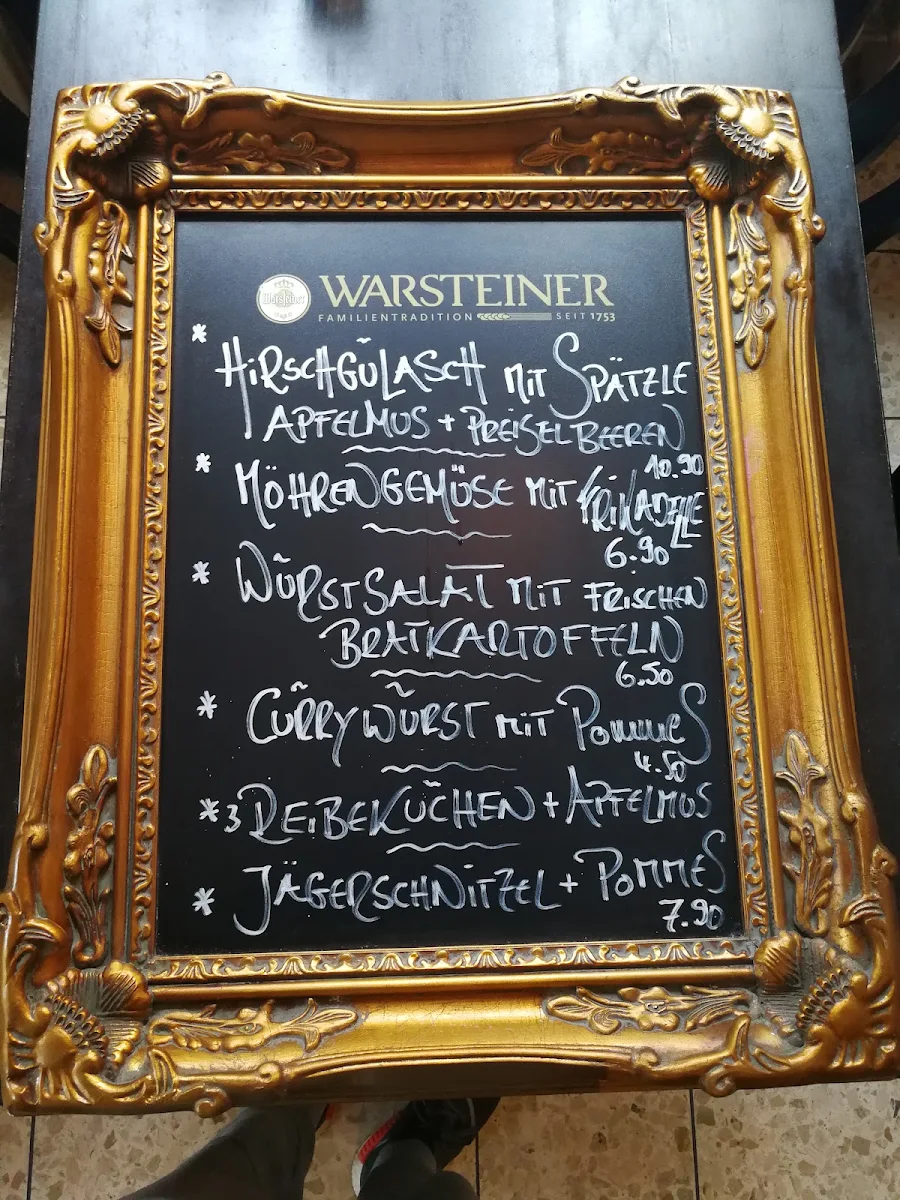 WARSTEINER
FAMILIENTRADITION SEIT 1753
* HIRSCHGŬLASCH MIT SPÄTZLE
APFELMUS + PREISELBEEREN
10.90
* MÖHRENGEMÜSE MIT FRIKADELLE
6.90
* WŬRSTSALAT MIT FRISCHEN
BRATKARTOFFELN
6.50
* CŬRRYWŬRST MIT POMMES
4.50
* 3 REIBEKŬCHEN + APFELMUS
* JÄGERSCHNITZEL + POMMES
7.90